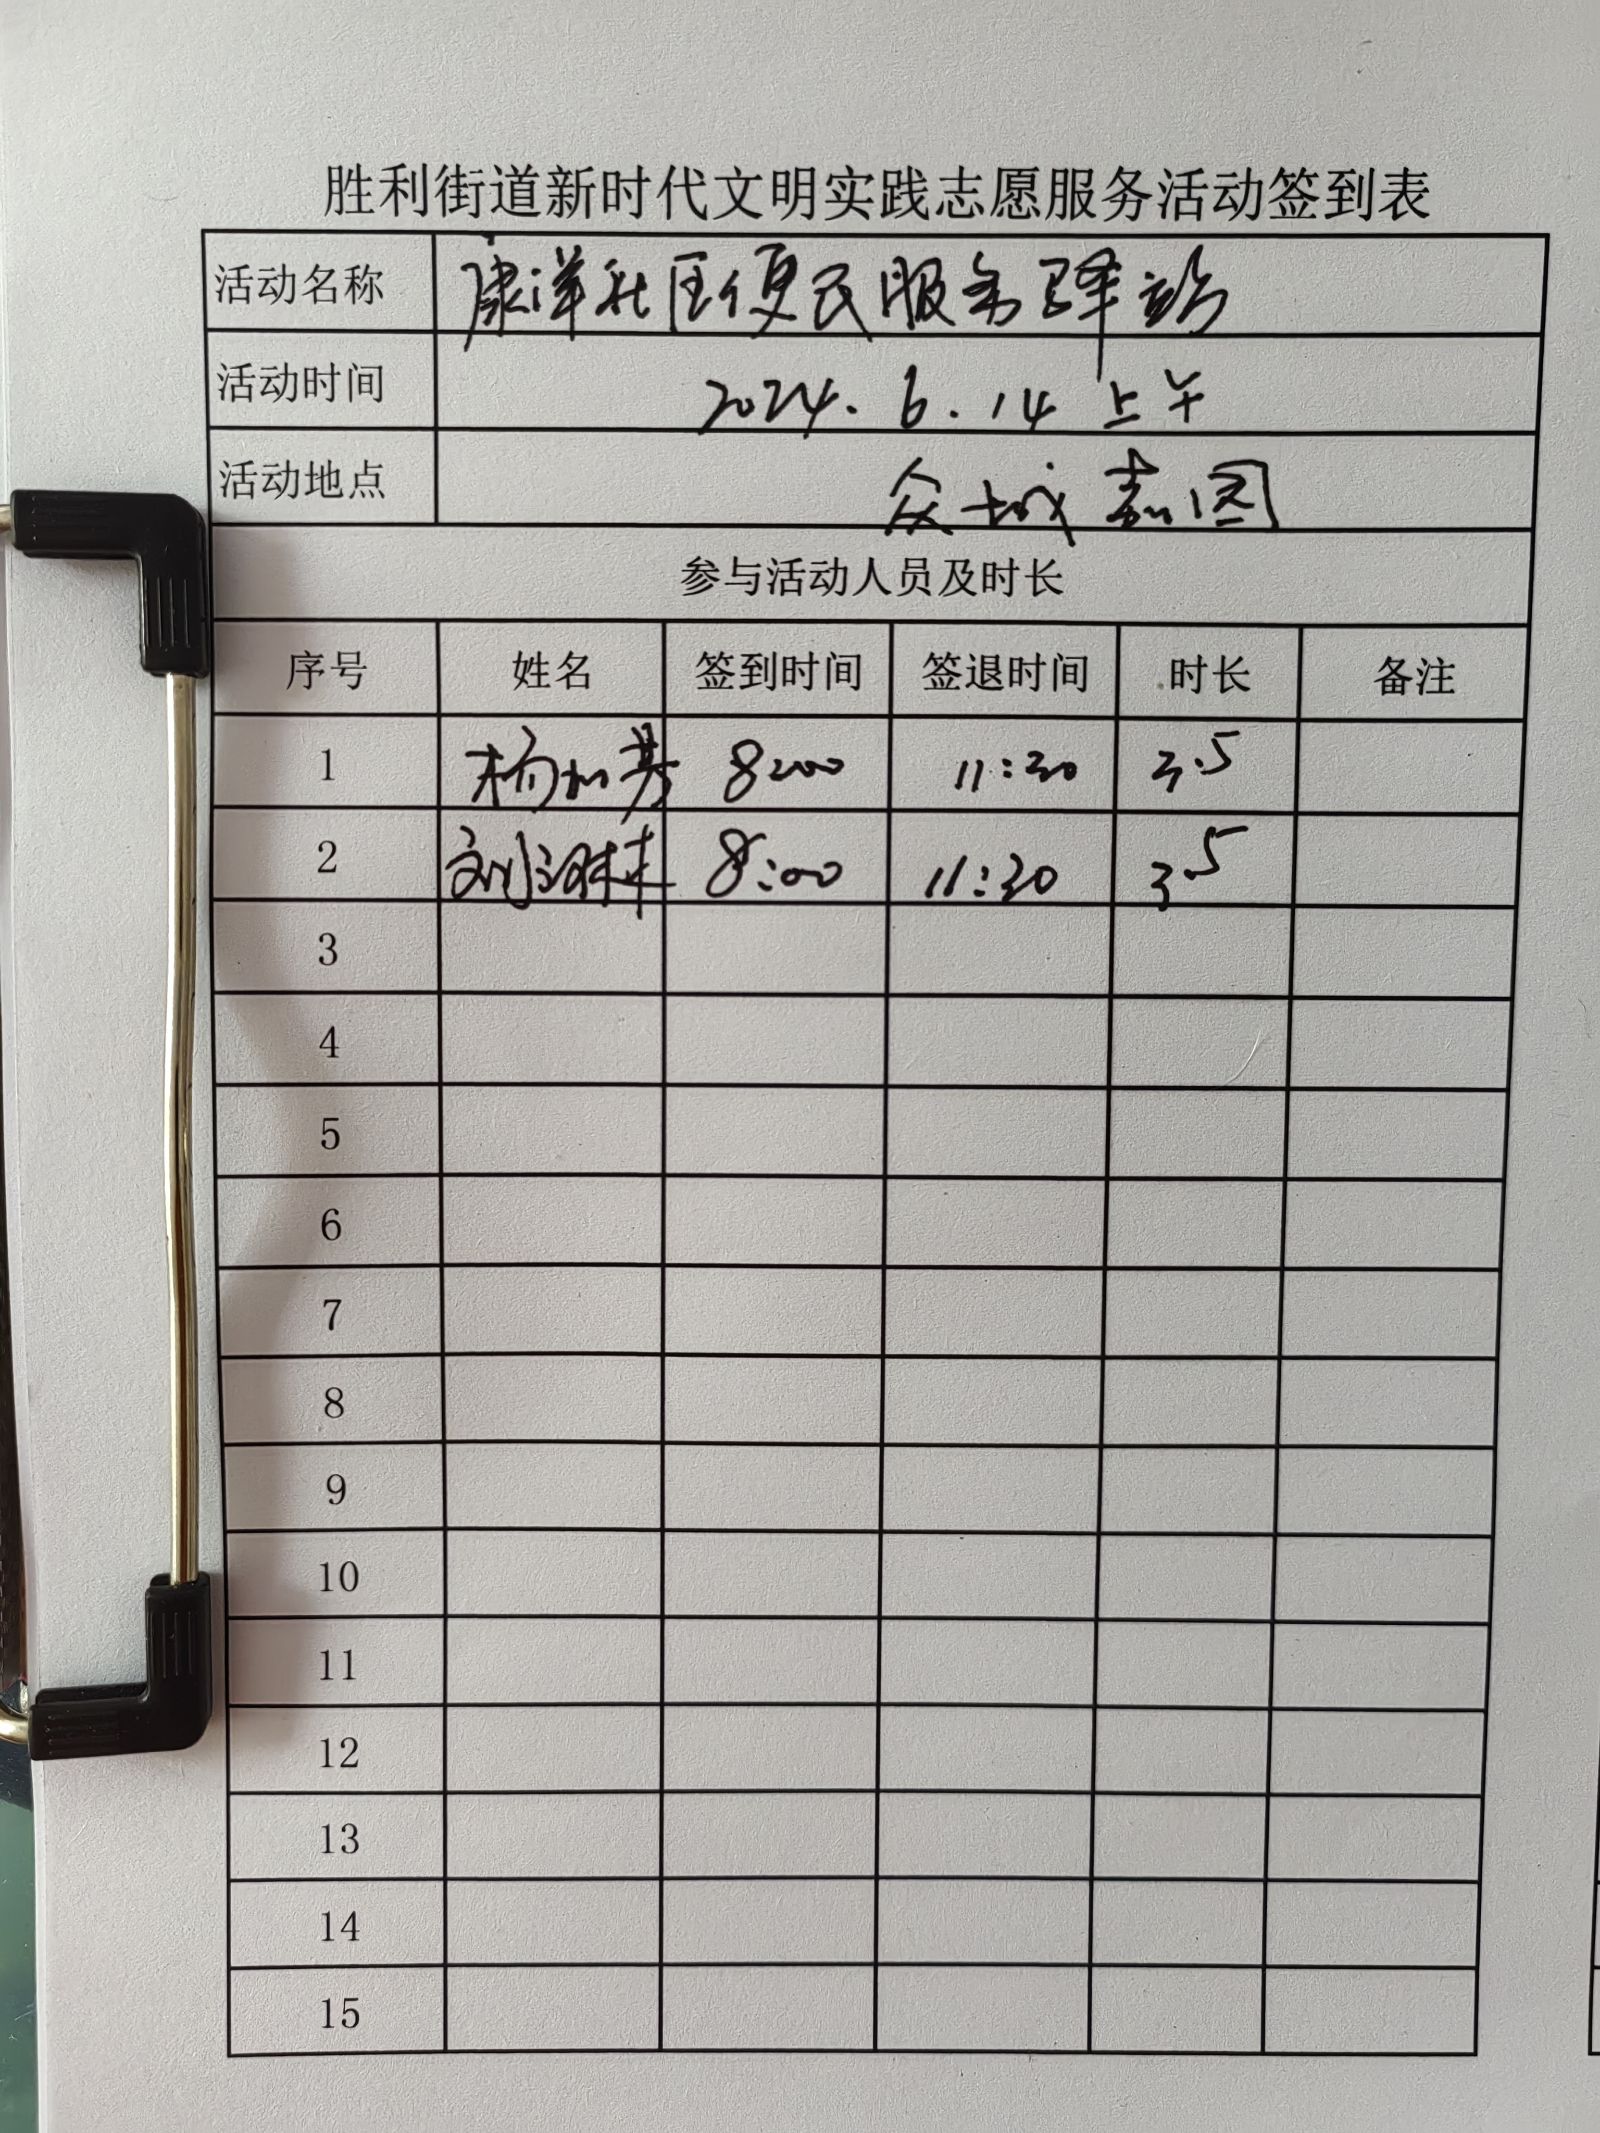 胜利街道新时代文明实践志愿服务活动签到表
活动名称 康洋社区便民服务驿站
活动时间 2024.6.14 上午
活动地点 众城嘉园
参与活动人员及时长
序号 姓名 签到时间 签退时间 时长 备注
1 8:00 11:30 3.5
2 8:00 11:30 3.5
3
4
5
6
7
8
9
10
11
12
13
14
15